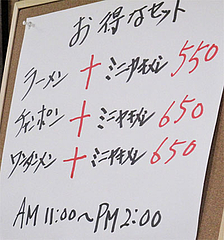 お得なセット
ラーメン + ミニヤキメシ 550
チャンポン + ミニヤキメシ 650
ワンタンメン + ミニヤキメシ 650
AM 11:00〜PM 2:00